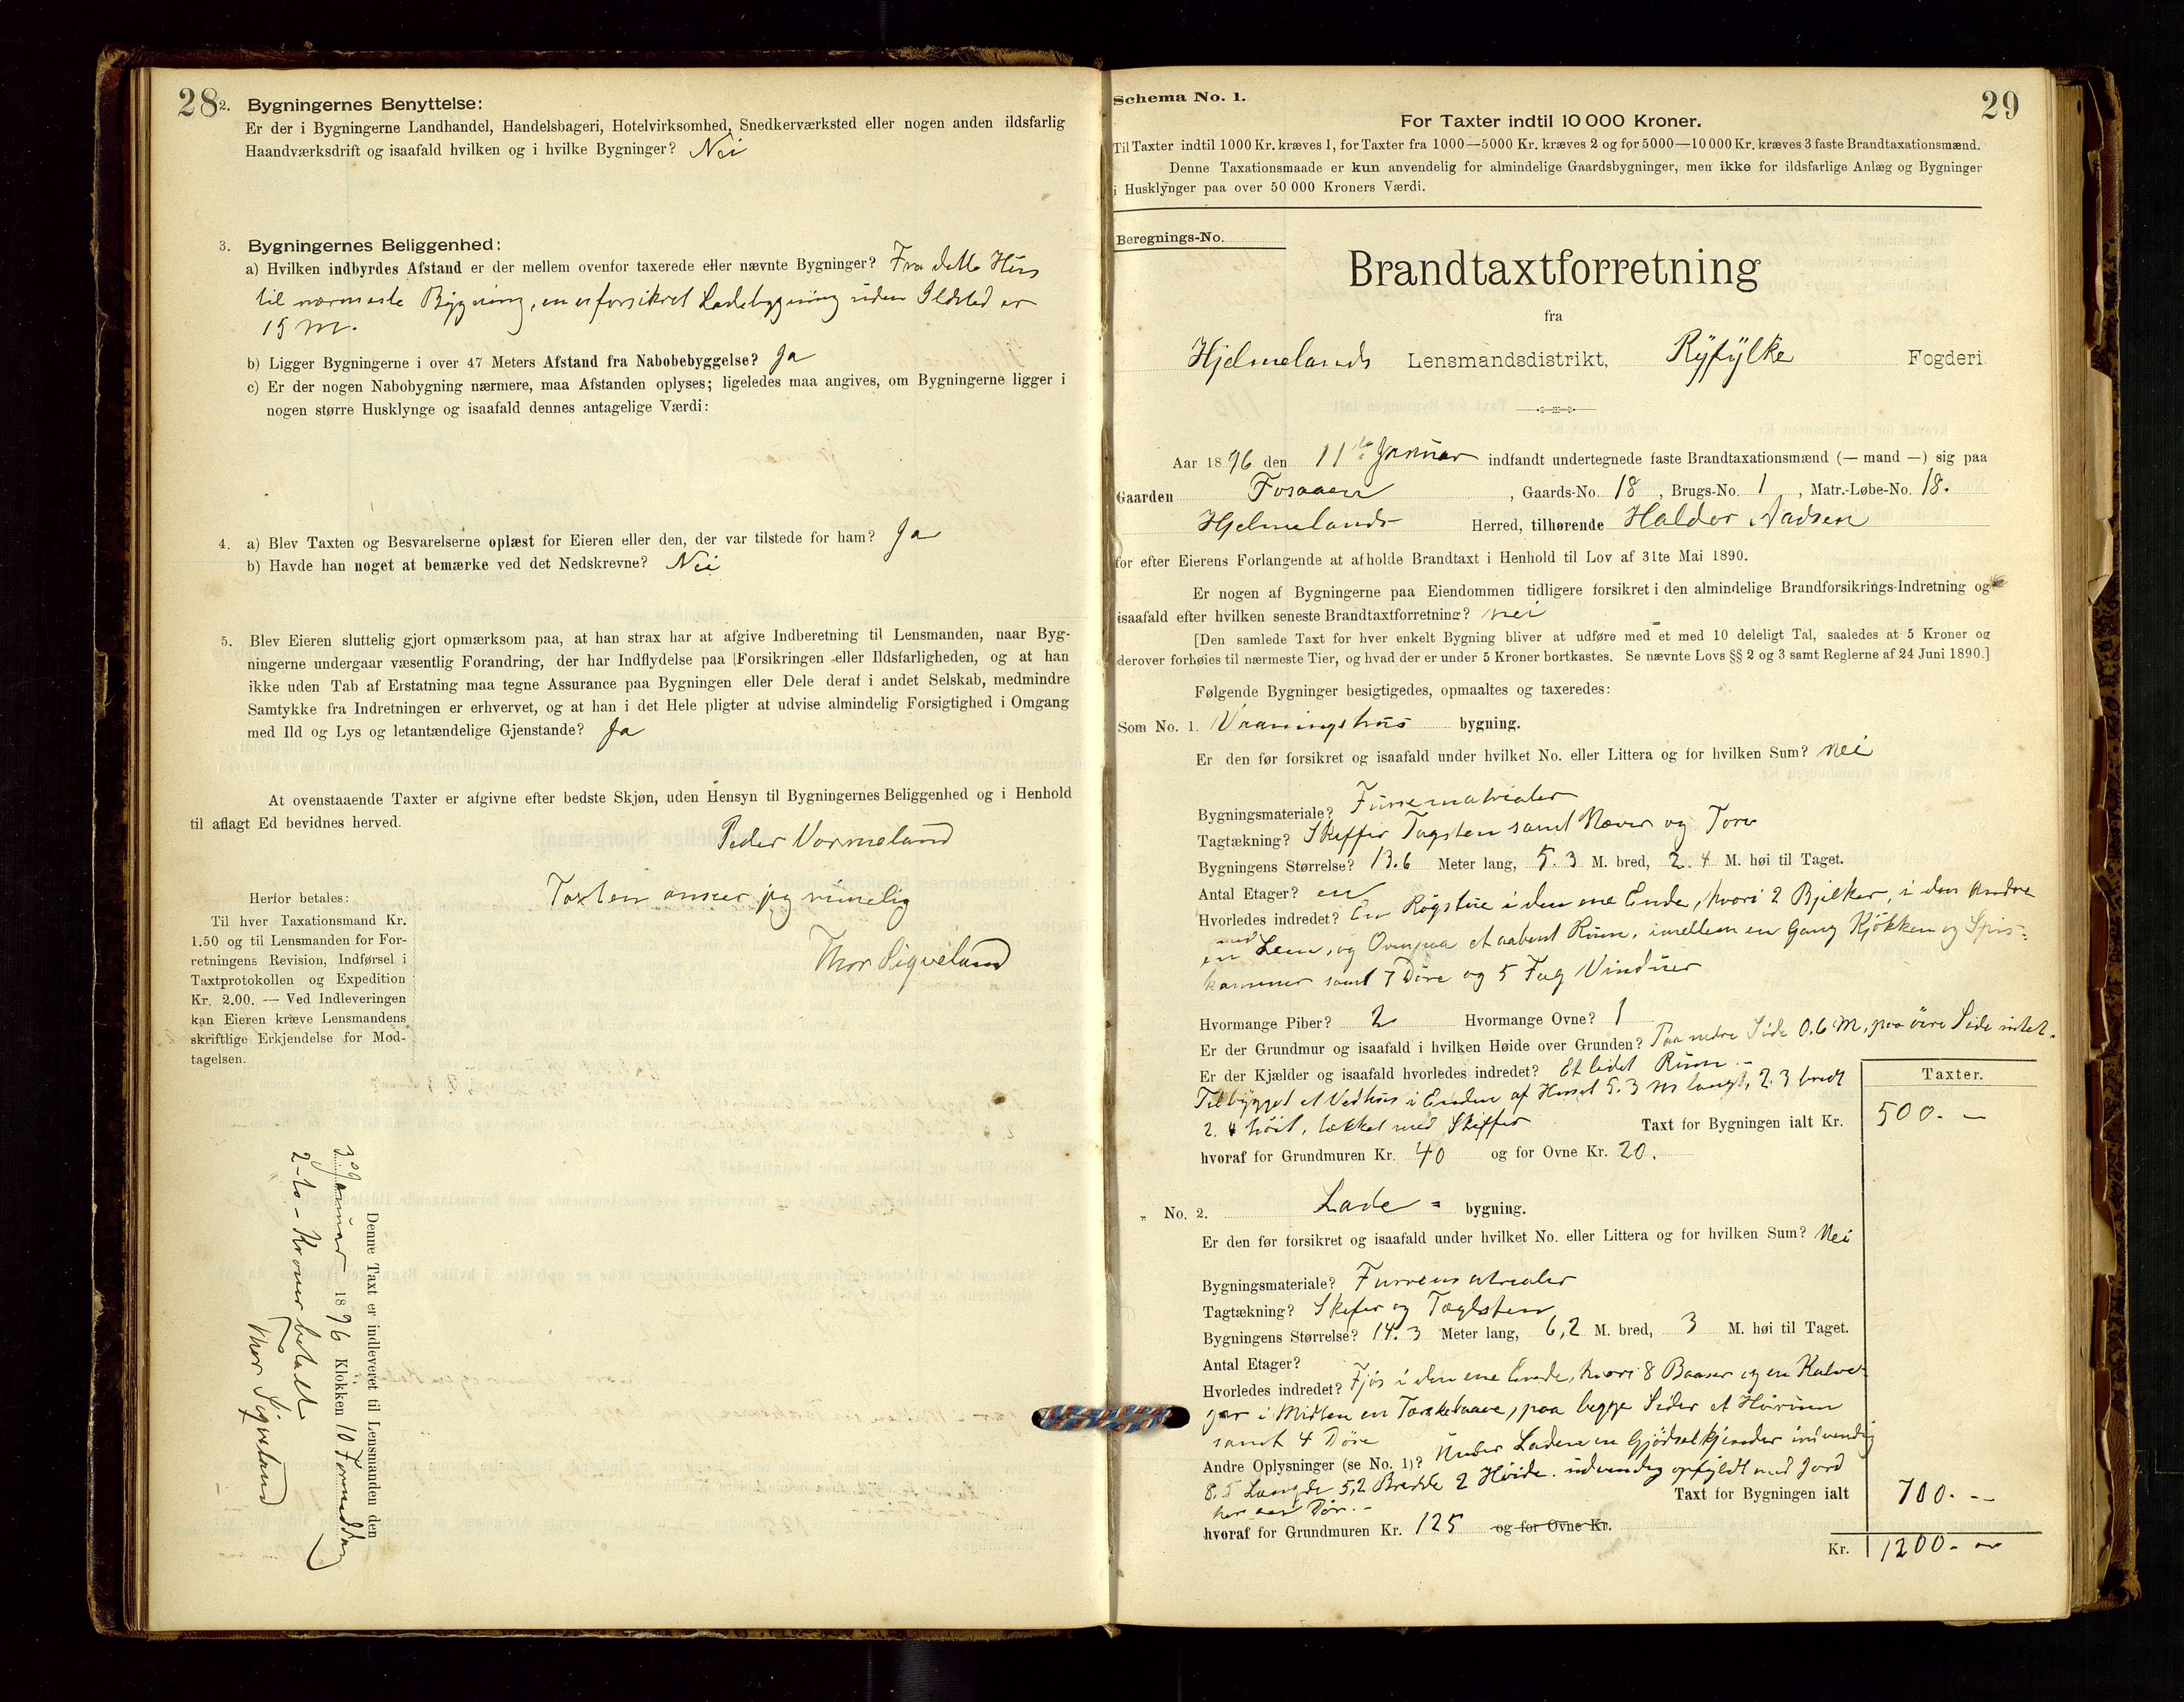 28
2. Bygningernes Benyttelse:
Er der i Bygningerne Landhandel, Handelsbageri, Hotelvirksomhed, Snedkerværksted eller nogen anden ildsfarlig
Haandværksdrift og isaafald hvilken og i hvilke Bygninger? Nei
3. Bygningernes Beliggenhed:
a) Hvilken indbyrdes Afstand er der mellem ovenfor taxerede eller nævnte Bygninger? Fra dette Hus
til nærmeste Bygning, en uforsikret Ladebygning uden Ildsted er
15 m.
b) Ligger Bygningerne i over 47 Meters Afstand fra Nabobebyggelse? Ja
c) Er der nogen Nabobygning nærmere, maa Afstanden oplyses; ligeledes maa angives, om Bygningerne ligger i
nogen større Husklynge og isaafald dennes antagelige Værdi:
4. a) Blev Taxten og Besvarelserne oplæst for Eieren eller den, der var tilstede for ham? Ja
b) Havde han noget at bemærke ved det Nedskrevne? Nei
5. Blev Eieren sluttelig gjort opmærksom paa, at han strax har at afgive Indberetning til Lensmanden, naar Byg-
ningerne undergaar væsentlig Forandring, der har Indflydelse paa Forsikringen eller Ildsfarligheden, og at han
ikke uden Tab af Erstatning maa tegne Assurance paa Bygningen eller Dele deraf i andet Selskab, medmindre
Samtykke fra Indretningen er erhvervet, og at han i det Hele pligter at udvise almindelig Forsigtighed i Omgang
med Ild og Lys og letantændelige Gjenstande? Ja
At ovenstaaende Taxter er afgivne efter bedste Skjøn, uden Hensyn til Bygningernes Beliggenhed og i Henhold
til aflagt Ed bevidnes herved.
Peder Vormeland
Taxten anser jeg rimelig
Thor Sigveland
Herfor betales:
Til hver Taxationsmand Kr.
1.50 og til Lensmanden for For-
retningens Revision, Indførsel i
Taxtprotokollen og Expedition
Kr. 2.00. — Ved Indleveringen
kan Eieren kræve Lensmandens
skriftlige Erkjendelse for Mod-
tagelsen.
Denne Taxt er indleveret til Lensmanden den
Januar 1896 Klokken 10 Formiddag
2-to-Kroner betalt
Thor Sigveland
29
Schema No. 1.
For Taxter indtil 10 000 Kroner.
Til Taxter indtil 1000 Kr. kræves 1, for Taxter fra 1000—5000 Kr. kræves 2 og for 5000—10 000 Kr. kræves 3 faste Brandtaxationsmænd.
Denne Taxationsmaade er kun anvendelig for almindelige Gaardsbygninger, men ikke for ildsfarlige Anlæg og Bygninger
i Husklynger paa over 50 000 Kroners Værdi.
Beregnings-No.
Brandtaxtforretning
fra
Hjelmelands Lensmandsdistrikt, Ryfylke Fogderi
Aar 1896 den 11te Januar indfandt undertegnede faste Brandtaxationsmænd (— mand —) sig paa
Gaarden Fosaaen, Gaards-No. 18, Brugs-No. 1, Matr.-Løbe-No. 18.
Hjelmelands Herred, tilhørende Haldor Aadsen
for efter Eierens Forlangende at afholde Brandtaxt i Henhold til Lov af 31te Mai 1890.
Er nogen af Bygningerne paa Eiendommen tidligere forsikret i den almindelige Brandforsikrings-Indretning og
isaafald efter hvilken seneste Brandtaxtforretning? nei
[Den samlede Taxt for hver enkelt Bygning bliver at udføre med et med 10 deleligt Tal, saaledes at 5 Kroner og
derover forhøies til nærmeste Tier, og hvad der er under 5 Kroner bortkastes. Se nævnte Lovs §§ 2 og 3 samt Reglerne af 24 Juni 1890.]
Følgende Bygninger besigtigedes, opmaaltes og taxeredes:
Som No. 1. Vaaningshus bygning.
Er den før forsikret og isaafald under hvilket No. eller Littera og for hvilken Sum? Nei
Bygningsmateriale? Furrematrialer
Tagtækning? Skeffer Tagsten samt Næver og Torv
Bygningens Størrelse? 13.6 Meter lang, 5.3 M. bred, 2.4 M. høi til Taget.
Antal Etager? en
Hvorledes indredet? En Røgstue i den ene Ende, hvori 2 Bjelker, i den andre
en med Lem, og Ovn paa et aabent Rum, imellem en Gang Kjøkken og Spis-
kammer samt 7 Døre og 5 Fag Vinduer
Hvormange Piber? 2 Hvormange Ovne? 1
Er der Grundmur og isaafald i hvilken Høide over Grunden? Paa nedre Side 0,6 M, paa øvre Side intet.
Er der Kjælder og isaafald hvorledes indredet? Et lidet Rum.-
Tilbygget et Vedhus i Enden af Huset 5.3 m langt, 2.3 bredt
2.4 høit, tækket med Skiffer Taxt for Bygningen ialt Kr.
Taxter.
500.-
hvoraf for Grundmuren Kr. 40 og for Ovne Kr. 20.
„ No. 2. Lade- bygning.
Er den før forsikret og isaafald under hvilket No. eller Littera og for hvilken Sum? Nei
Bygningsmateriale? Furrematrialer
Tagtækning? Skefer og Taglsten
Bygningens Størrelse? 14.3 Meter lang, 6,2 M. bred, 3 M. høi til Taget.
Antal Etager?
Hvorledes indredet? Fjøs i den ene Ende, hvori 8 Baaser og en Kalve-
gar i Midten en Tærskelaave, paa begge Sider et Hørum
samt 4 Døre
Andre Oplysninger (se No. 1)? Under Laden en Gjødselkjender indvendig
8.5 Længde 5,2 Bredde 2 Høide. udvendig opfyldt med Jord
har een Dør.- Taxt for Bygningen ialt 700.--
hvoraf for Grundmuren Kr. 125 og for Ovne Kr.
Kr. 1200.-